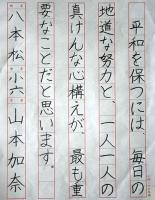 平和を保つには、毎日の
地道な努力と、一人一人の
真けんな心構えが、最も重
要なことだと思います。
八本松小六 山本加奈